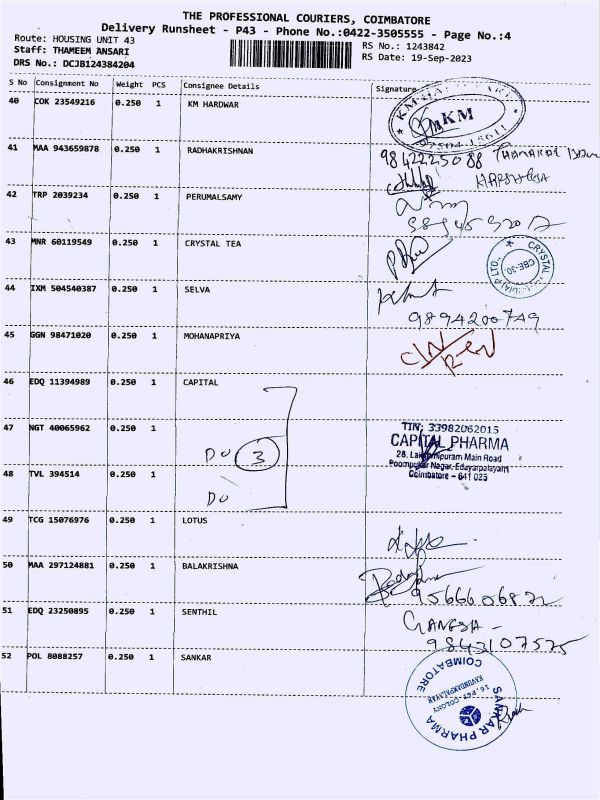 THE PROFESSIONAL COURIERS, COIMBATORE
Delivery Runsheet - P43 - Phone No.:0422-3505555 - Page No.:4
Route: HOUSING UNIT 43
Staff: THAMEEM ANSARI
DRS No.: DCJB124384204
RS No.: 1243842
RS Date: 19-Sep-2023
S No Consignment No Weight PCS Consignee Details Signature
40 COK 23549216 0.250 1 KM HARDWAR
KM
41 MAA 943659878 0.250 1 RADHAKRISHNAN
9842225088
42 TRP 2039234 0.250 1 PERUMALSAMY
43 MNR 60119549 0.250 1 CRYSTAL TEA
CRYSTAL
CBE-30.
44 IXM 504540387 0.250 1 SELVA
9894200749
45 GGN 98471020 0.250 1 MOHANAPRIYA
46 EDQ 11394989 0.250 1 CAPITAL
47 NGT 40065962 0.250 1
DO 3
TIN: 33982062015
CAPITAL PHARMA
28. Lakshmipuram Main Road
Poompukar Nagar, Edayarpalayam
Coimbatore - 641 025
48 TVL 394514 0.250 1
DO
49 TCG 15076976 0.250 1 LOTUS
50 MAA 297124881 0.250 1 BALAKRISHNA
51 EDQ 23250895 0.250 1 SENTHIL
GANESA -
9843107575
52 POL 8088257 0.250 1 SANKAR
SANKAR PHARMA
COIMBATORE